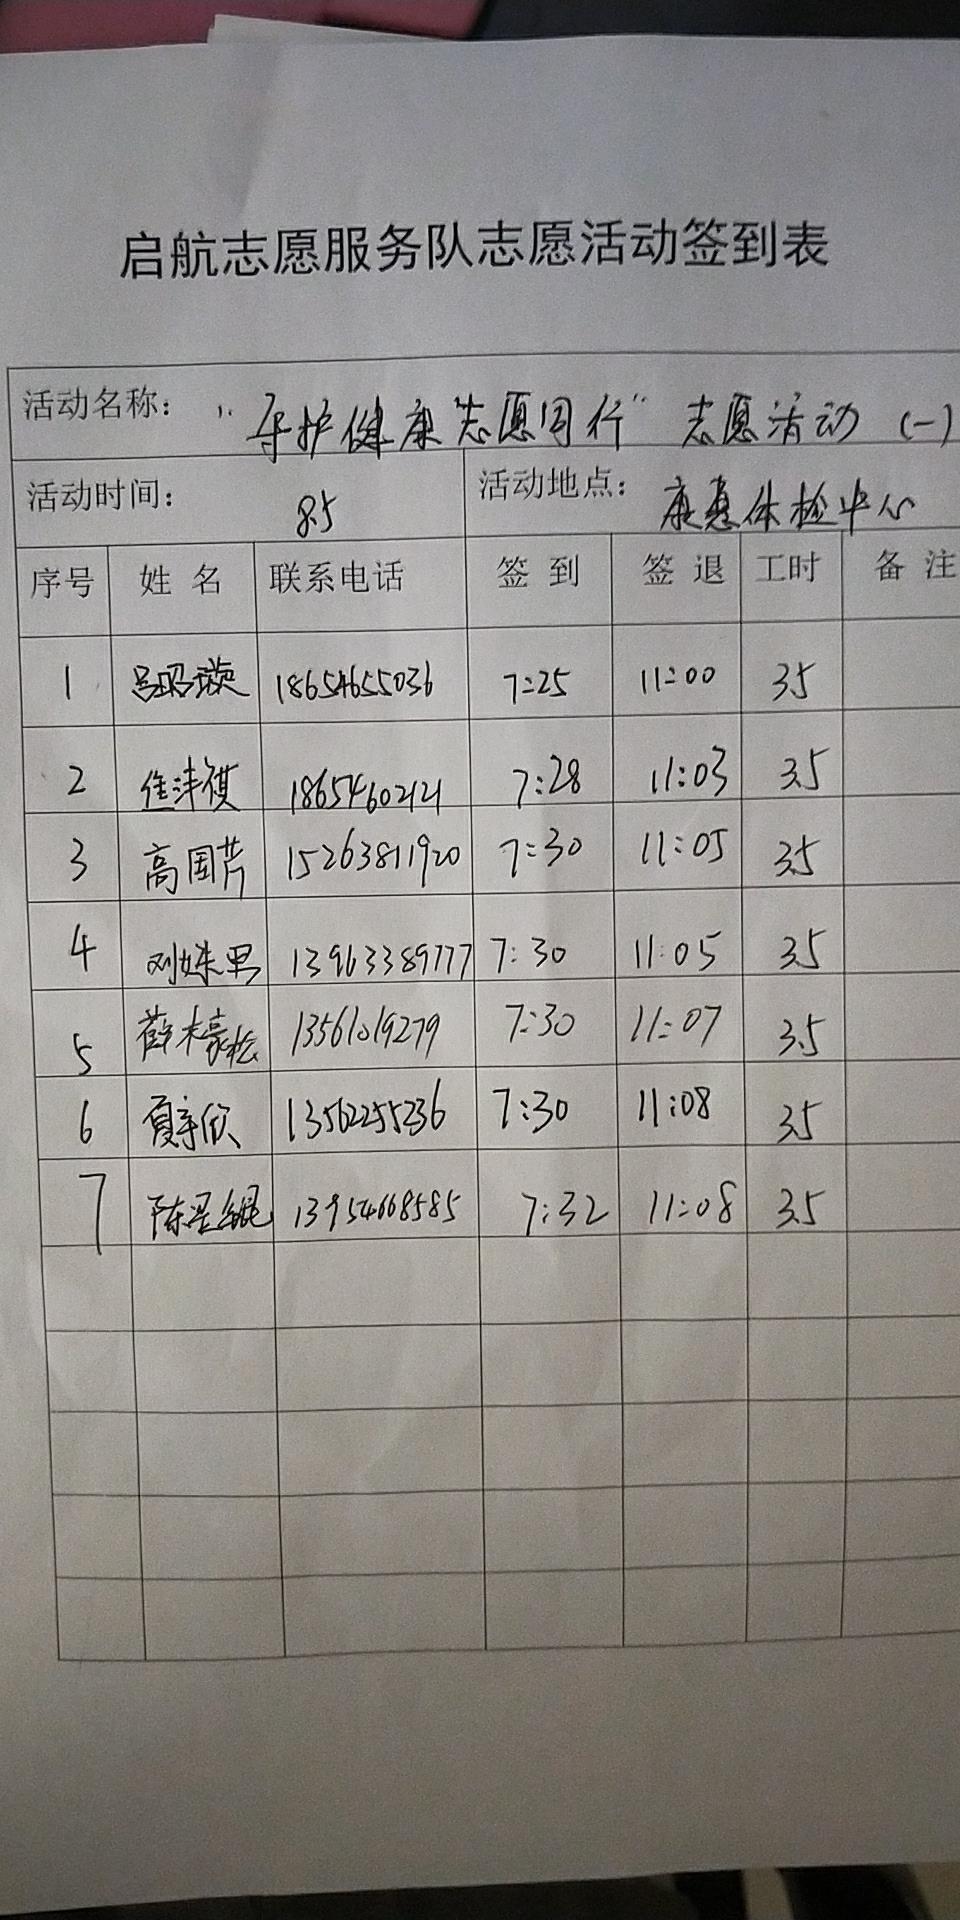 启航志愿服务队志愿活动签到表
活动名称： “守护健康 志愿同行” 志愿活动（一）
活动时间： 8.5 活动地点： 康惠体检中心
序号 姓名 联系电话 签到 签退 工时 备注
1 吕昭璇 18654655036 7:25 11:00 3.5
2 隹沣祺 18654602121 7:28 11:03 3.5
3 高国芹 15263811920 7:30 11:05 3.5
4 刘姝男 13963389777 7:30 11:05 3.5
5 薛木豪松 13561019279 7:30 11:07 3.5
6 夏辛欣 13562255236 7:30 11:08 3.5
7 陈星锟 13954668585 7:32 11:08 3.5